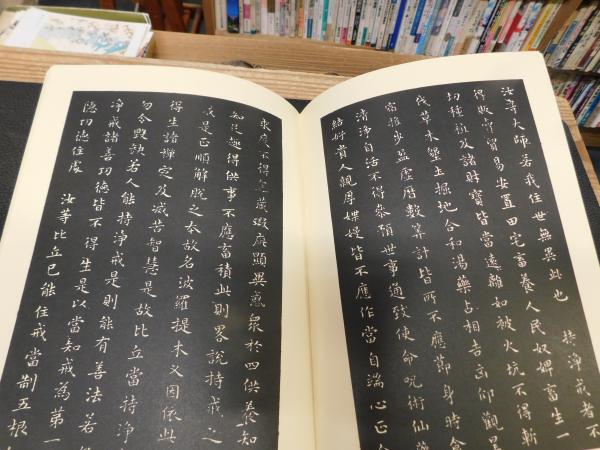 汝等大師若我住世無異此也 持淨戒者不
得販賣貿易安置田宅畜養人民奴婢畜生一
切種植及諸財寶皆當遠離如避火坑不得斬
伐草木墾土掘地合和湯藥占相吉凶仰觀星
宿推步盈虛曆數算計皆所不應節身時食
清淨自活不得參預世事通致使命呪術仙藥
結好貴人親厚媟嫚皆不應作當自端心正
求度不得包藏瑕疵顯異惑衆於四供養知
知足趣得供事不應畜積此則畧說持戒之
戒是正順解脫之本故名波羅提木叉因依此
得生諸禪定及滅苦智慧是故比丘當持淨
勿令毀缺若人能持淨戒是則能有善法若
淨戒諸善功德皆不得生是以當知戒為第一
隱功德住處 汝等比丘已能住戒當制五根